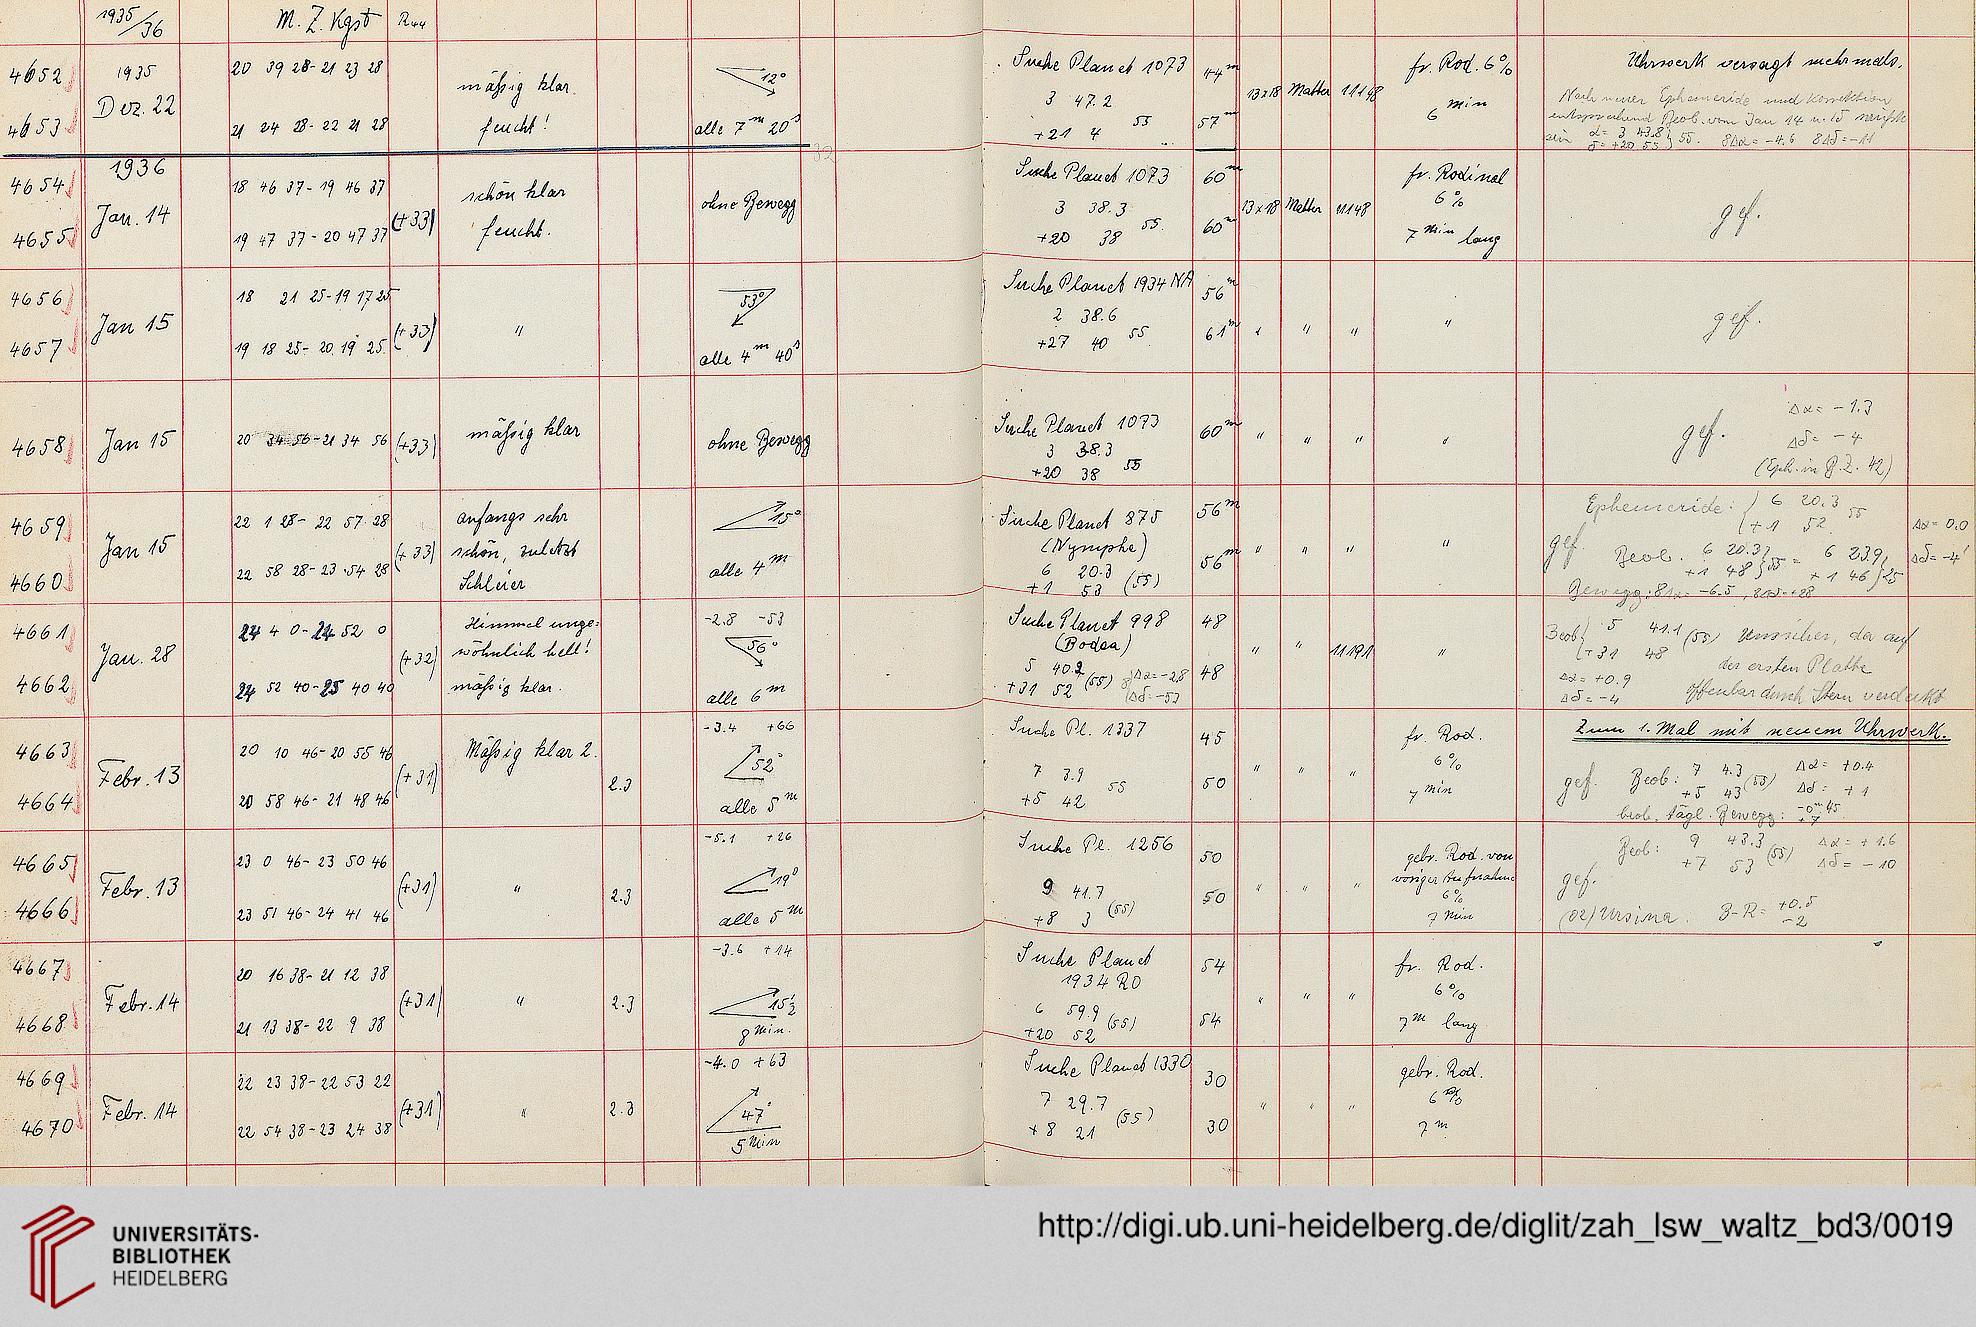 1935/36 M. Z. Kgst
4652 1935 20 39 28 - 21 23 28 mäßig klar. 12° Suche Planet 1073 44ᵐ 13x18 Matter 11148 fr. Rod. 6% Uhrwerk versagt mehrmals.
Dez. 22 3 47.2 6 min Nach neuer Ephemeride und Korrektion
4653 21 24 28 - 22 21 28 feucht! alle 7ᵐ 20ˢ +21 4 55 57ᵐ entsprechend Beob. vom Jan 14 u. 15 müßte
sein α = 3 43.8 δ = +20 55 } 55. 8Δα = -4.6 8Δδ = -11
1936
4654 Jan. 14 18 46 37 - 19 46 37 (+33) schön klar ohne Bewegg Suche Planet 1073 60ᵐ 13x18 Matter 11148 fr. Rodinal gef.
3 38.3 6%
4655 19 47 37 - 20 47 37 feucht. +20 38 55. 60ᵐ 7 min lang
4656 Jan 15 18 21 25 - 19 17 25 (+33) " 53° Suche Planet 1934 NA 56ᵐ " " " " gef.
2 38.6
4657 19 18 25 - 20 19 25 alle 4ᵐ 40ˢ +27 40 55 61ᵐ
4658 Jan 15 20 34 56 - 21 34 56 (+33) mäßig klar ohne Bewegg Suche Planet 1073 60ᵐ " " " " gef. Δα = -1.3
3 38.3 Δδ = -4
+20 38 55 (Eph. in B.Z. 42)
4659 Jan 15 22 1 28 - 22 57 28 (+33) anfangs sehr 15° Suche Planet 875 56ᵐ " " " " Ephemeride: { 6 20.3 +1 52 55 Δα = 0.0
schön, zuletzt (Nymphe) gef. Beob. 6 20.3 +1 48 } 55 = 6 23.9 +1 46 } 25 Δδ = -4'
4660 22 58 28 - 23 54 28 Schleier alle 4ᵐ 6 20.3 56ᵐ
+1 53 (55) Bewegg: 8Δα = -6.5, 8Δδ = -28
4661 Jan. 28 24 4 0 - 24 52 0 (+32) Himmel unge- -2.8 -53 Suche Planet 998 48 " " 11191 " Beob { 5 41.1 +31 48 (55) unsicher, da auf
wöhnlich hell! 56° (Bodea) der ersten Platte
4662 24 52 40 - 25 40 40 mäßig klar. alle 6ᵐ 5 40.2 +31 52 (55) 8{ Δα = -2.8 Δδ = -53 48 Δα = +0.9 Δδ = -4 offenbar durch Stern verdeckt
4663 Febr. 13 20 10 46 - 20 58 46 (+31) Mäßig klar 2. 2.3 -3.4 +66 Suche Pl. 1337 45 " " " fr. Rod. Zum 1. Mal mit neuem Uhrwerk.
52° 7 3.9 6% gef. Beob: 7 4.3 +5 43 (55) Δα = +0.4 Δδ = +1
4664 20 58 46 - 21 48 46 alle 5ᵐ +5 42 55 50 7 min beob. tägl. Bewegg: -0ᵐ45 +7
4665 Febr. 13 23 0 46 - 23 50 46 (+31) " 2.3 -5.1 +26 Suche Pl. 1256 50 " " " gebr. Rod. von Beob: 9 43.3 +7 53 (55) Δα = +1.6 Δδ = -10
19° 9 41.7 voriger Aufnahme gef.
4666 23 51 46 - 24 41 46 alle 5ᵐ +8 3 (55) 50 6% 7 min Ursina. B-R = +0.5 -2
4667 Febr. 14 20 16 38 - 21 12 38 (+31) " 2.3 -3.6 +14 Suche Planet 54 " " " fr. Rod.
1934 RO 6%
4668 21 13 38 - 22 9 38 15½ 8 min. 6 59.9 +20 52 (55) 54 7ᵐ lang
4669 Febr. 14 22 23 38 - 22 53 22 (+31) " 2.3 -4.0 +63 Suche Planet 1330 30 " " " gebr. Rod.
7 29.7 6%
4670 22 54 38 - 23 24 38 47° 5 Min +8 21 (55) 30 7ᵐ
UNIVERSITÄTS-
BIBLIOTHEK
HEIDELBERG
http://digi.ub.uni-heidelberg.de/diglit/zah_lsw_waltz_bd3/0019